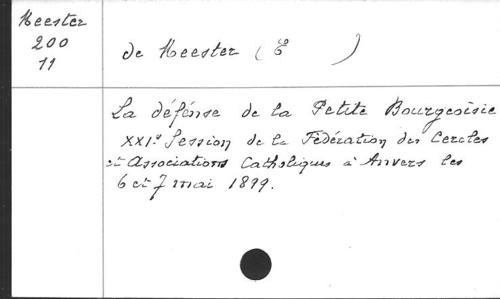 Meester
200
11
de Meester (E )
La défense de la Petite Bourgeoisie
XXIe Session de la Fédération des Cercles
et Associations Catholiques à Anvers les
6 et 7 mai 1899.